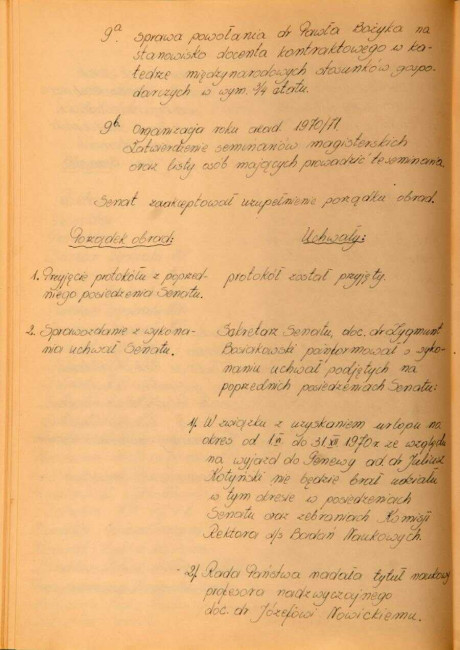 9a. sprawa powołania dr Pawła Bożyka na
stanowisko docenta kontraktowego w ka-
tedrze międzynarodowych stosunków gospo-
darczych w wym. 3/4 etatu.
9b. Organizacja roku akad. 1970/71.
Zatwierdzenie seminariów magisterskich
oraz listy osób mających prowadzić te seminaria.
Senat zaakceptował uzupełnienie porządku obrad.
Porządek obrad:
Uchwały:
1. Przyjęcie protokółu z poprzed-
niego posiedzenia Senatu.
protokół został przyjęty.
2. Sprawozdanie z wykona-
nia uchwał Senatu.
Sekretarz Senatu, doc. dr Zygmunt
Bosiakowski poinformował o wyko-
naniu uchwał podjętych na
poprzednich posiedzeniach Senatu:
1/ W związku z uzyskaniem urlopu na
okres od 1 do 31 1970r ze względu
na wyjazd do Genewy ad. dr Juliusz
Kotyński nie będzie brał udziału
w tym okresie w posiedzeniach
Senatu oraz zebraniach Komisji
Rektora d/s Badań Naukowych.
2/ Rada Państwa nadała tytuł naukowy
profesora nadzwyczajnego
doc. dr Józefowi Nowickiemu.